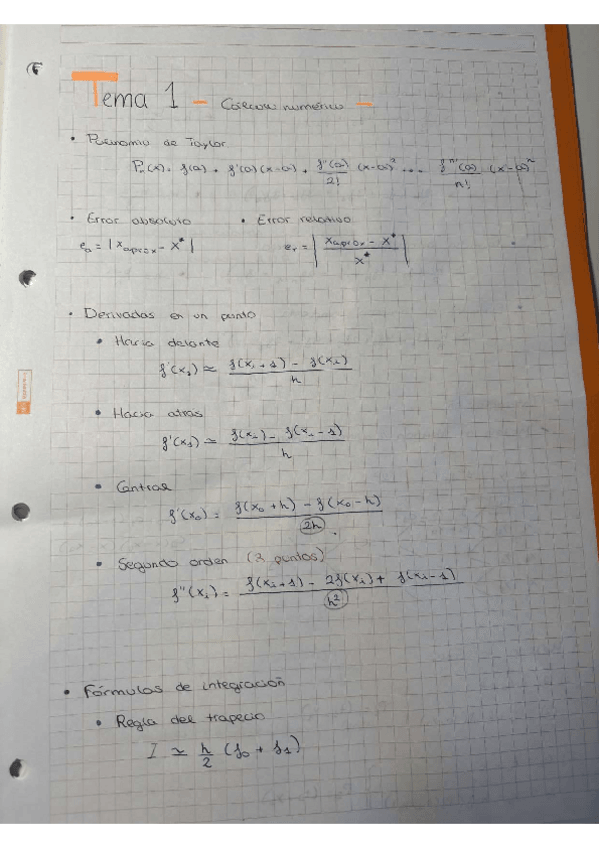 Tema 1 - Cálculo numérico -
• Polinomio de Taylor
Pn(x) = f(a) + f'(a)(x-a) + f''(a)/2! (x-a)² ... fⁿ'(a)/n! (x-a)ⁿ
• Error absoluto • Error relativo
e_a = |x_aprox - x*| e_r = |(x_aprox - x*)/x*|
• Derivadas en un punto
• Hacia delante
f'(x₁) ≃ (f(xᵢ+1) - f(xᵢ))/h
• Hacia atrás
f'(x₁) ≃ (f(xᵢ) - f(xᵢ-1))/h
• Central
f'(x₀) = (f(x₀+h) - f(x₀-h))/2h
• Segundo orden (3 puntos)
f''(xᵢ) = (f(xᵢ+1) - 2f(xᵢ) + f(xᵢ-1))/h²
• Fórmulas de integración
• Regla del trapecio
I ≃ h/2 (f₀ + f₁)